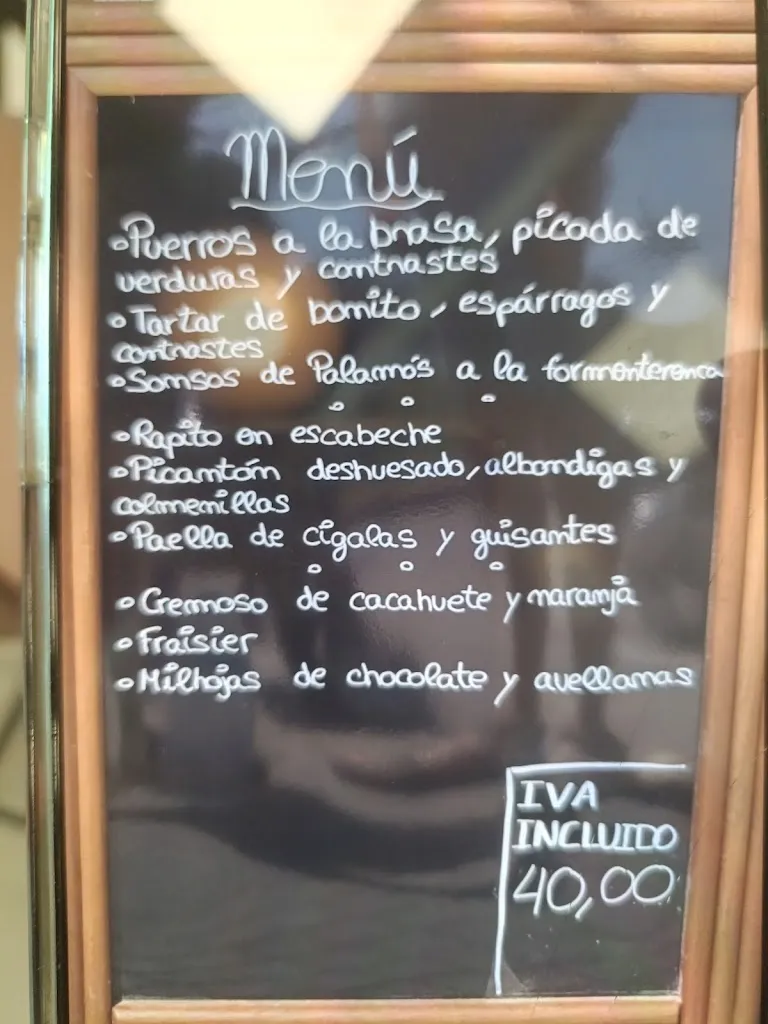 Menú
•Puerros a la brasa, picada de
verduras y contrastes
•Tartar de bonito, espárragos y
contrastes
•Sonsos de Palamós a la formenterenca
° ° °
•Rapito en escabeche
•Picantón deshuesado, albondigas y
colmenillas
•Paella de cigalas y guisantes
° ° °
•Cremoso de cacahuete y naranja
•Fraisier
•Milhojas de chocolate y avellanas
IVA
INCLUIDO
40,00